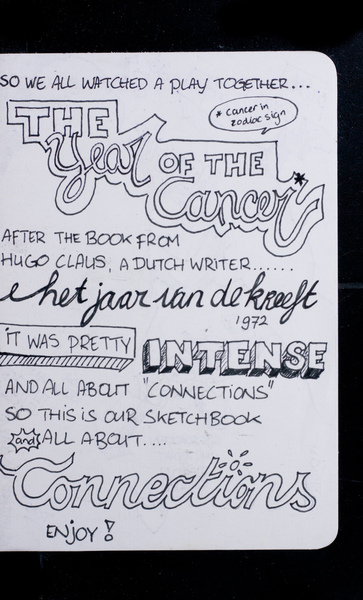 SO WE ALL WATCHED A PLAY TOGETHER...
THE
Year OF THE
* cancer in
zodiac sign
Cancer*
AFTER THE BOOK FROM
HUGO CLAUS, A DUTCH WRITER......
het jaar van de kreeft
1972
iT WAS PRETTY
INTENSE
AND ALL ABOUT "CONNECTiONS"
SO THIS iS OUR SKETCHBOOK
and ALL ABOUT....
Connections
ENJOY!